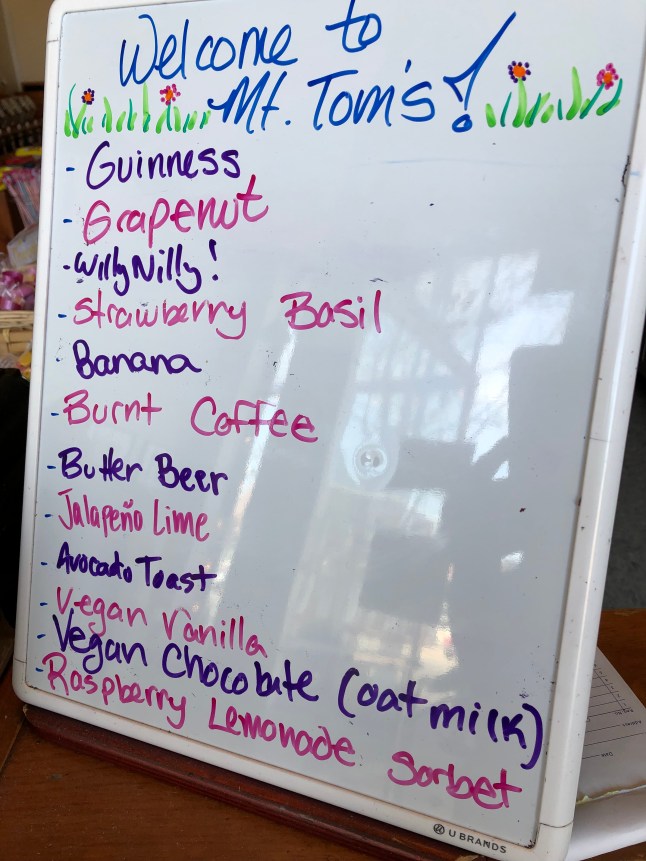 Welcome to
Mt. Tom's!
- Guinness
- Grapenut
- Willy Nilly!
- Strawberry Basil
- Banana
- Burnt Coffee
- Butter Beer
- Jalapeño Lime
- Avocado Toast
- Vegan Vanilla
- Vegan Chocolate (oat milk)
- Raspberry Lemonade Sorbet
U BRANDS